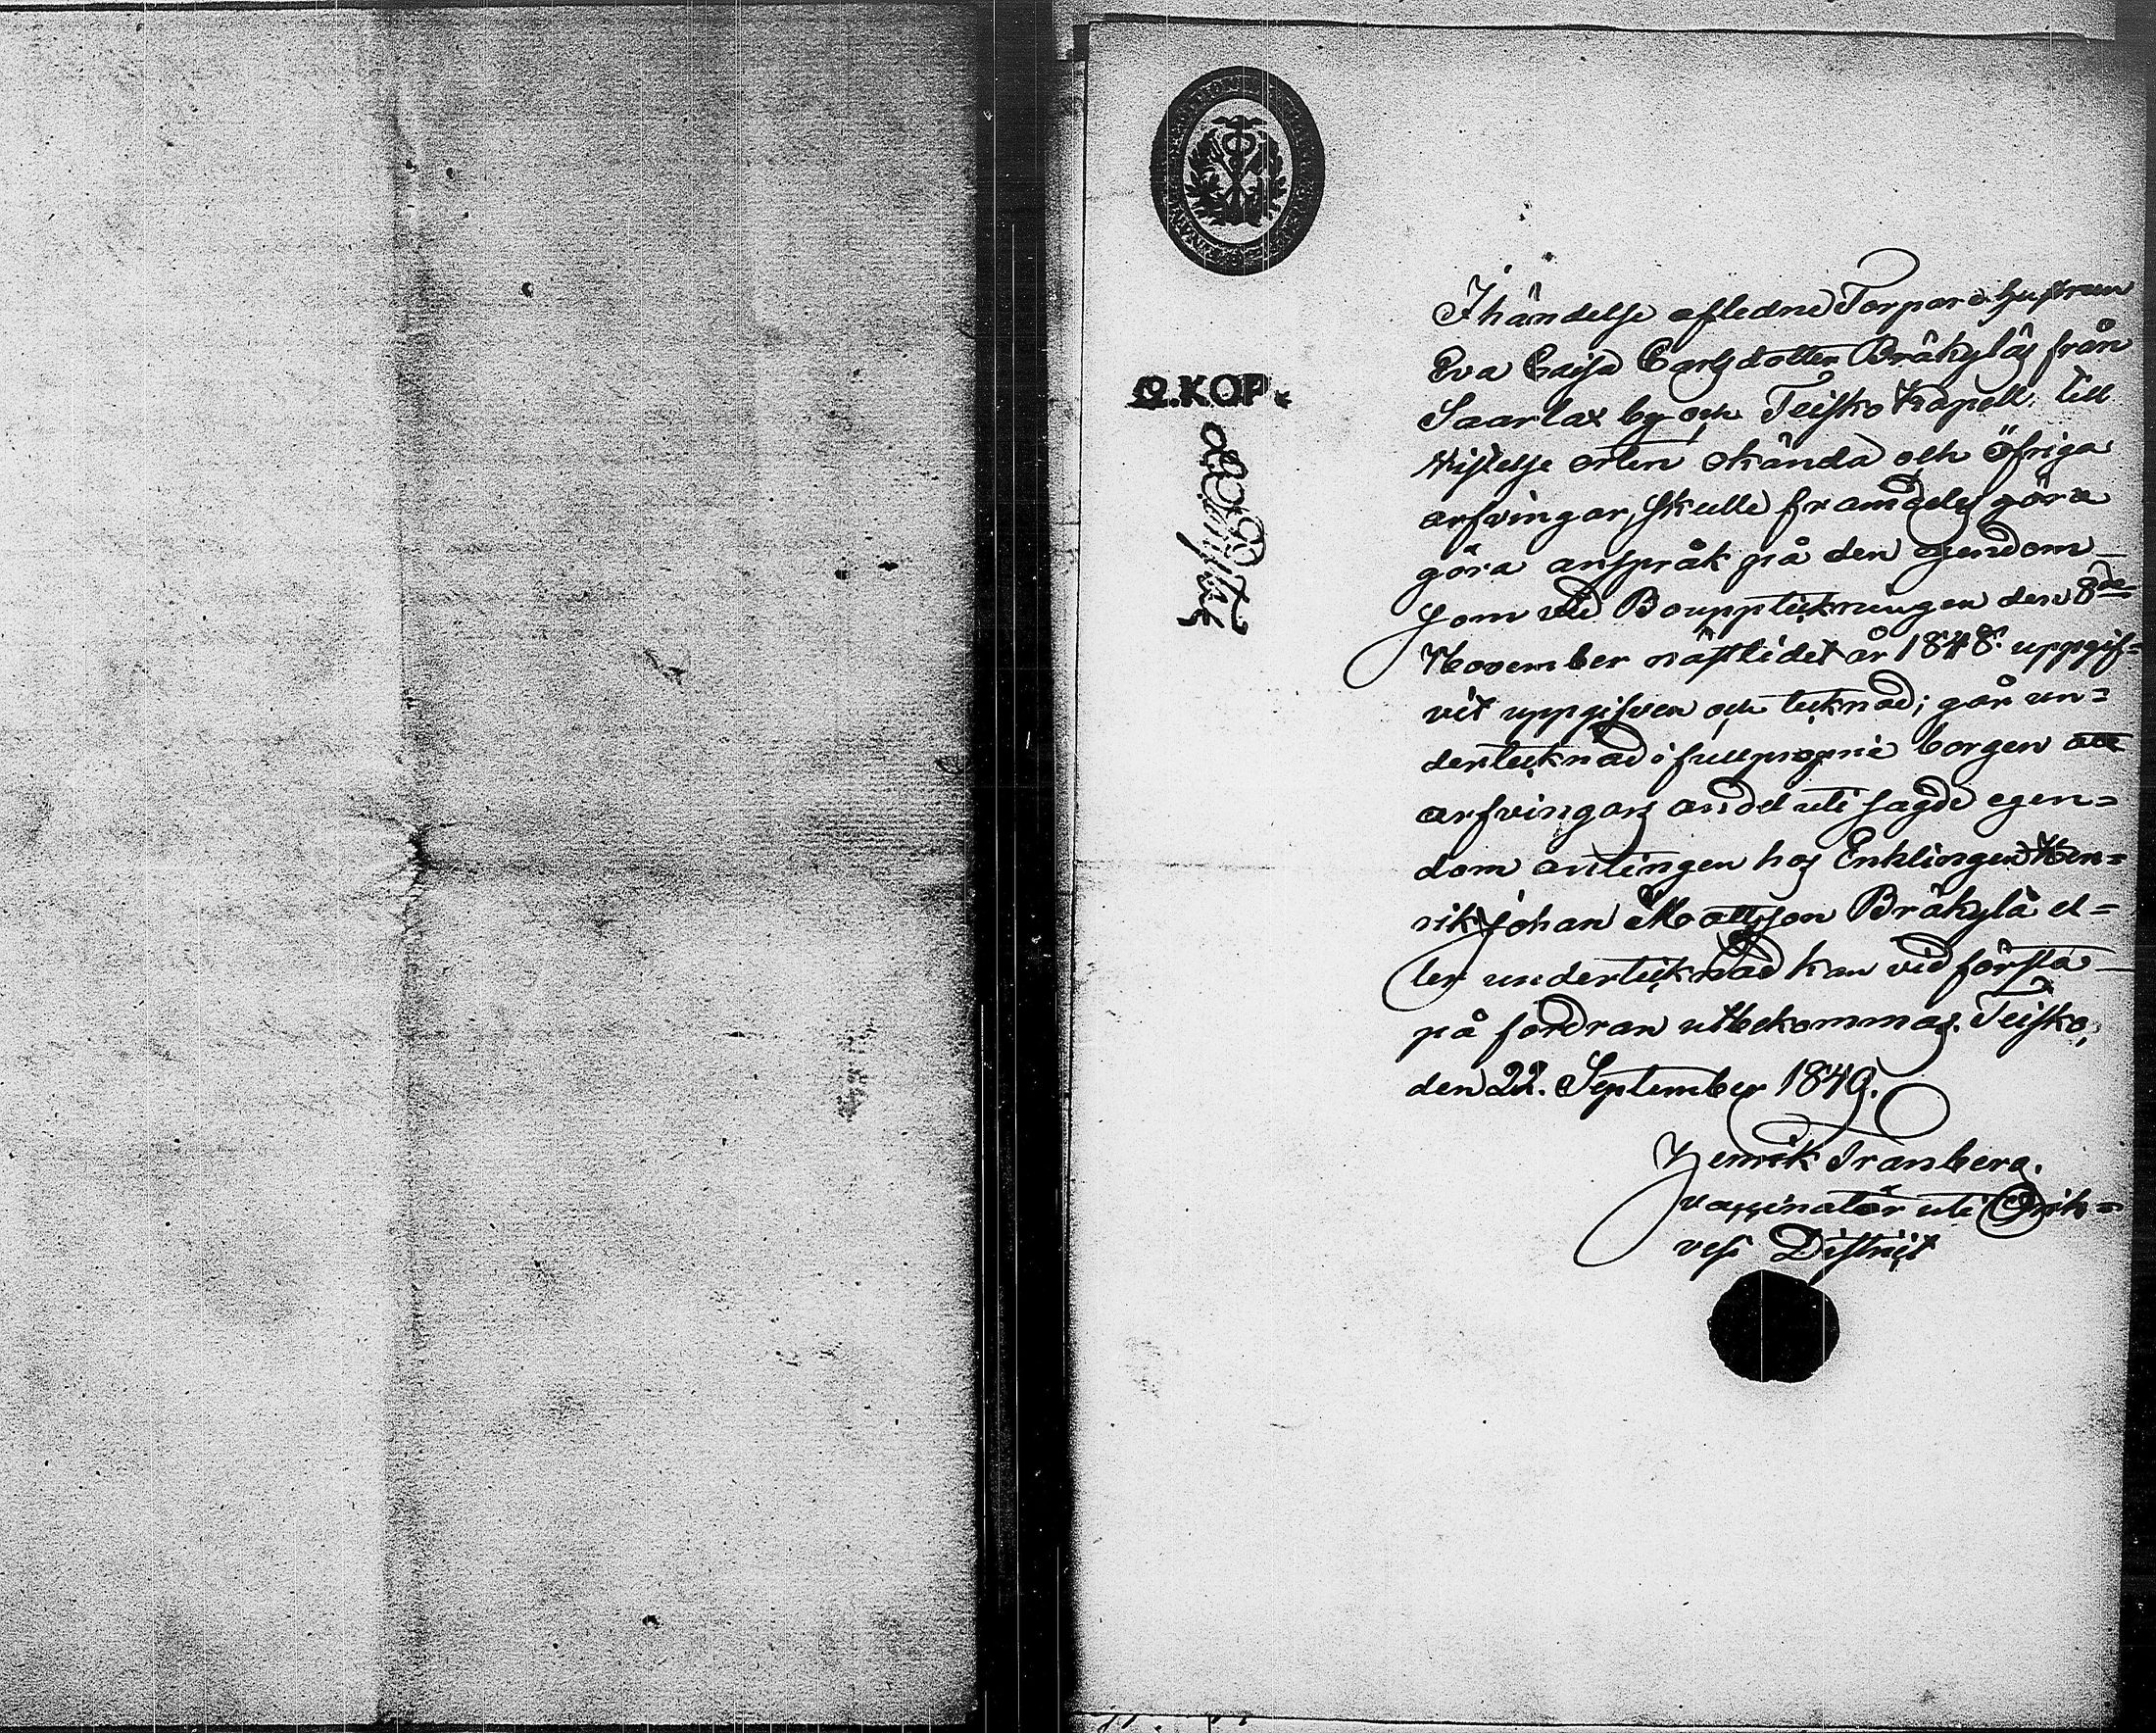 12.KOP.
I händelse afledne Torpare hustrun
Eva Caisa Carlsdotter Bräkyläs från
Saarlax by och Teisko Kapell, till
vistelse orten okända och öfriga
arfvingar, skulle framdeles göra
göra anspråk på den egendom
som vid Boupptekningen den 8de
November nästledet år 1848. uppgif=
vit uppgifven och tecknad; går un=
dertecknad i fullproprie borgen att
arfvingars andel uti sagde egen=
dom antingen hos Enklingen Hen=
rik Johan Mattsson Bräkylä el=
ler undertecknad kan vid första
på fordran utbekommas. Teisko,
den 22. September 1849.
Henrik Tranberg.
vaccinatör uti Orih=
vesi District